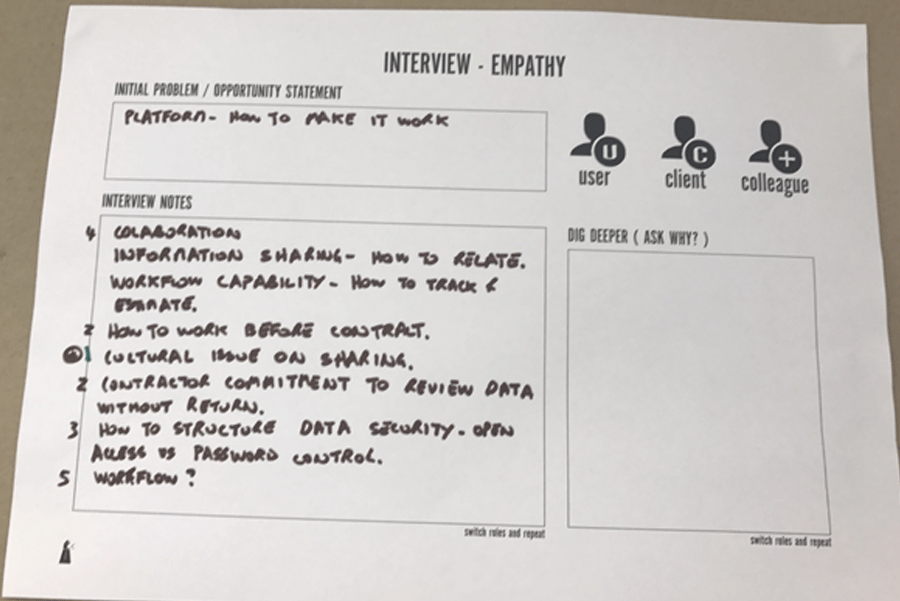 INTERVIEW - EMPATHY
INITIAL PROBLEM / OPPORTUNITY STATEMENT
PLATFORM - HOW TO MAKE IT WORK
U
C
+
user
client
colleague
INTERVIEW NOTES
4 COLABORATION
INFORMATION SHARING - HOW TO RELATE.
WORKFLOW CAPABILITY - HOW TO TRACK &
2 HOW TO WORK BEFORE CONTRACT.
1 CULTURAL ISSUE ON SHARING.
2 CONTRACTOR COMMITMENT TO REVIEW DATA
WITHOUT RETURN.
3 HOW TO STRUCTURE DATA SECURITY - OPEN
ACCESS VS PASSWORD CONTROL.
5 WORKFLOW?
switch roles and repeat
DIG DEEPER ( ASK WHY? )
switch roles and repeat